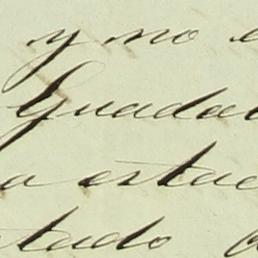 y no e
Guadal
a estac
stado